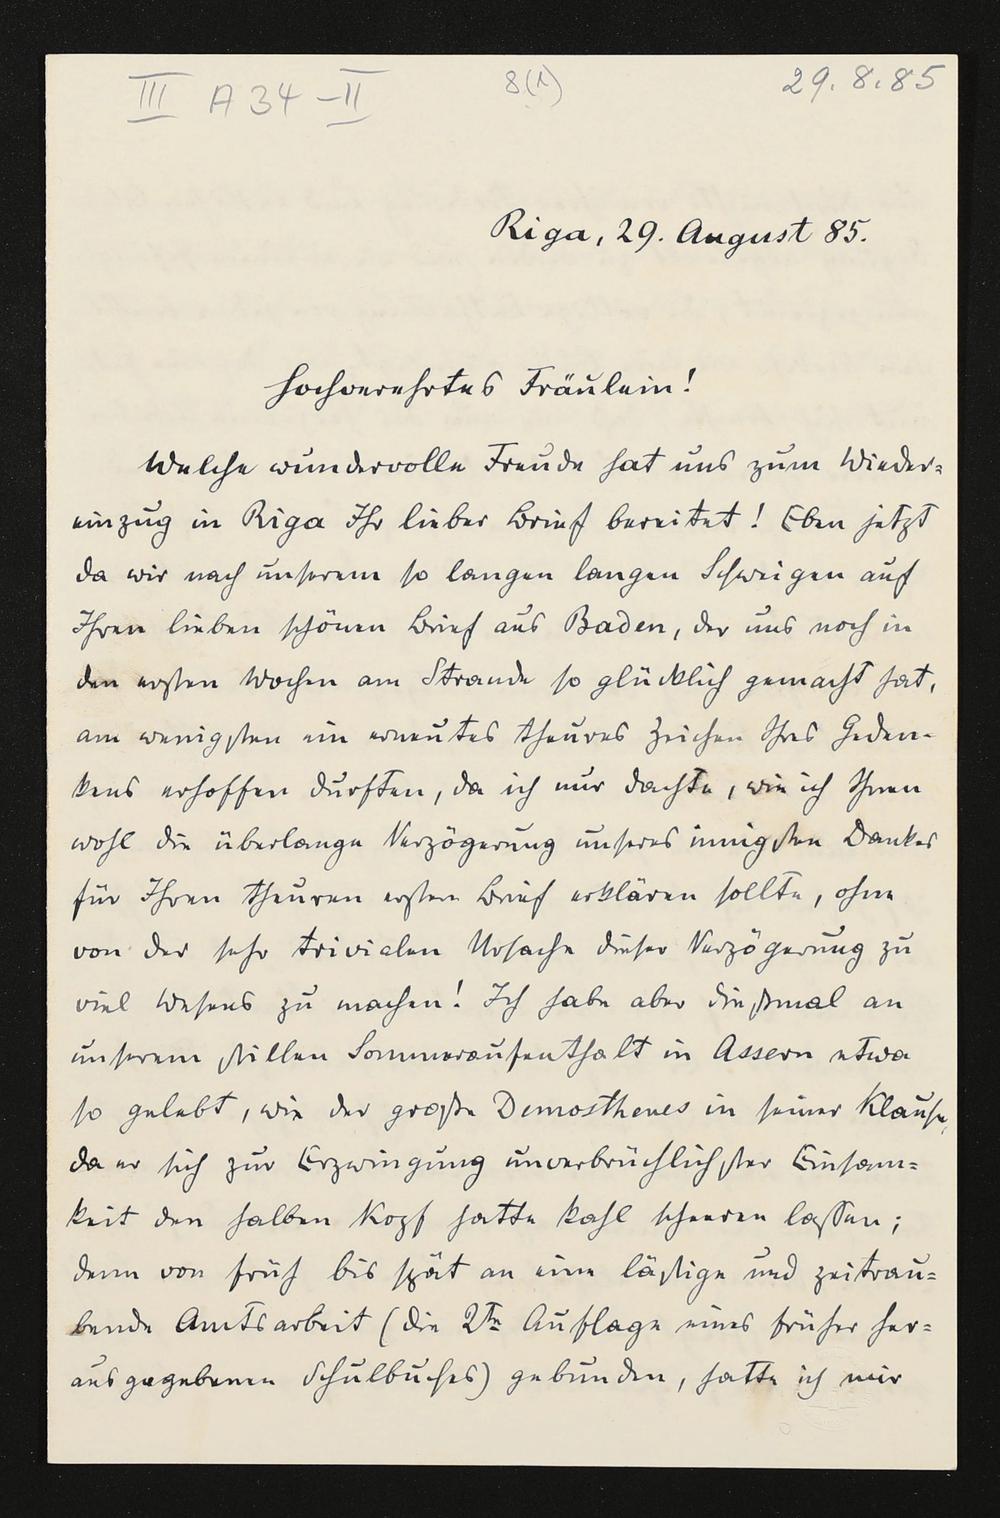 III A 34 - II
8(1)
29.8.85
Riga, 29. August 85.
Hochverehrtes Fräulein!
Welche wundervolle Freude hat uns zum Wieder-
einzug in Riga Ihr lieber Brief bereitet! Eben jetzt
da wir nach unserem so langen langen Schweigen auf
Ihren lieben schönen Brief aus Baden, der uns noch in
den ersten Wochen am Strande so glücklich gemacht hat,
am wenigsten ein erneutes theures Zeichen Ihres Geden-
kens erhoffen durften, da ich nur dachte, wie ich Ihnen
wohl die überlange Verzögerung unseres innigsten Dankes
für Ihren theuren ersten Brief erklären sollte, ohne
von der sehr trivialen Ursache dieser Verzögerung zu
viel Wesens zu machen! Ich habe aber dießmal an
unserem stillen Sommeraufenthalt in Assern etwa
so gelebt, wie der große Demosthenes in seiner Klause,
da er sich zur Erzwingung unverbrüchlichster Einsam-
keit den halben Kopf hatte kahl scheeren lassen;
denn von früh bis spät an eine lästige und zeitrau-
bende Amtsarbeit (die 2te Auflage eines früher her-
ausgegebenen Schulbuches) gebunden, hatte ich mir